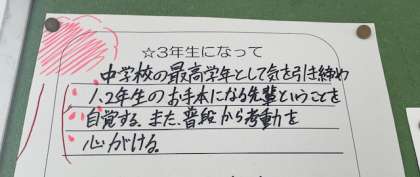 ☆3年生になって
中学校の最高学年として気を引き締め
1、2年生のお手本になる先輩ということを
自覚する。また、普段から考動を
心がける。